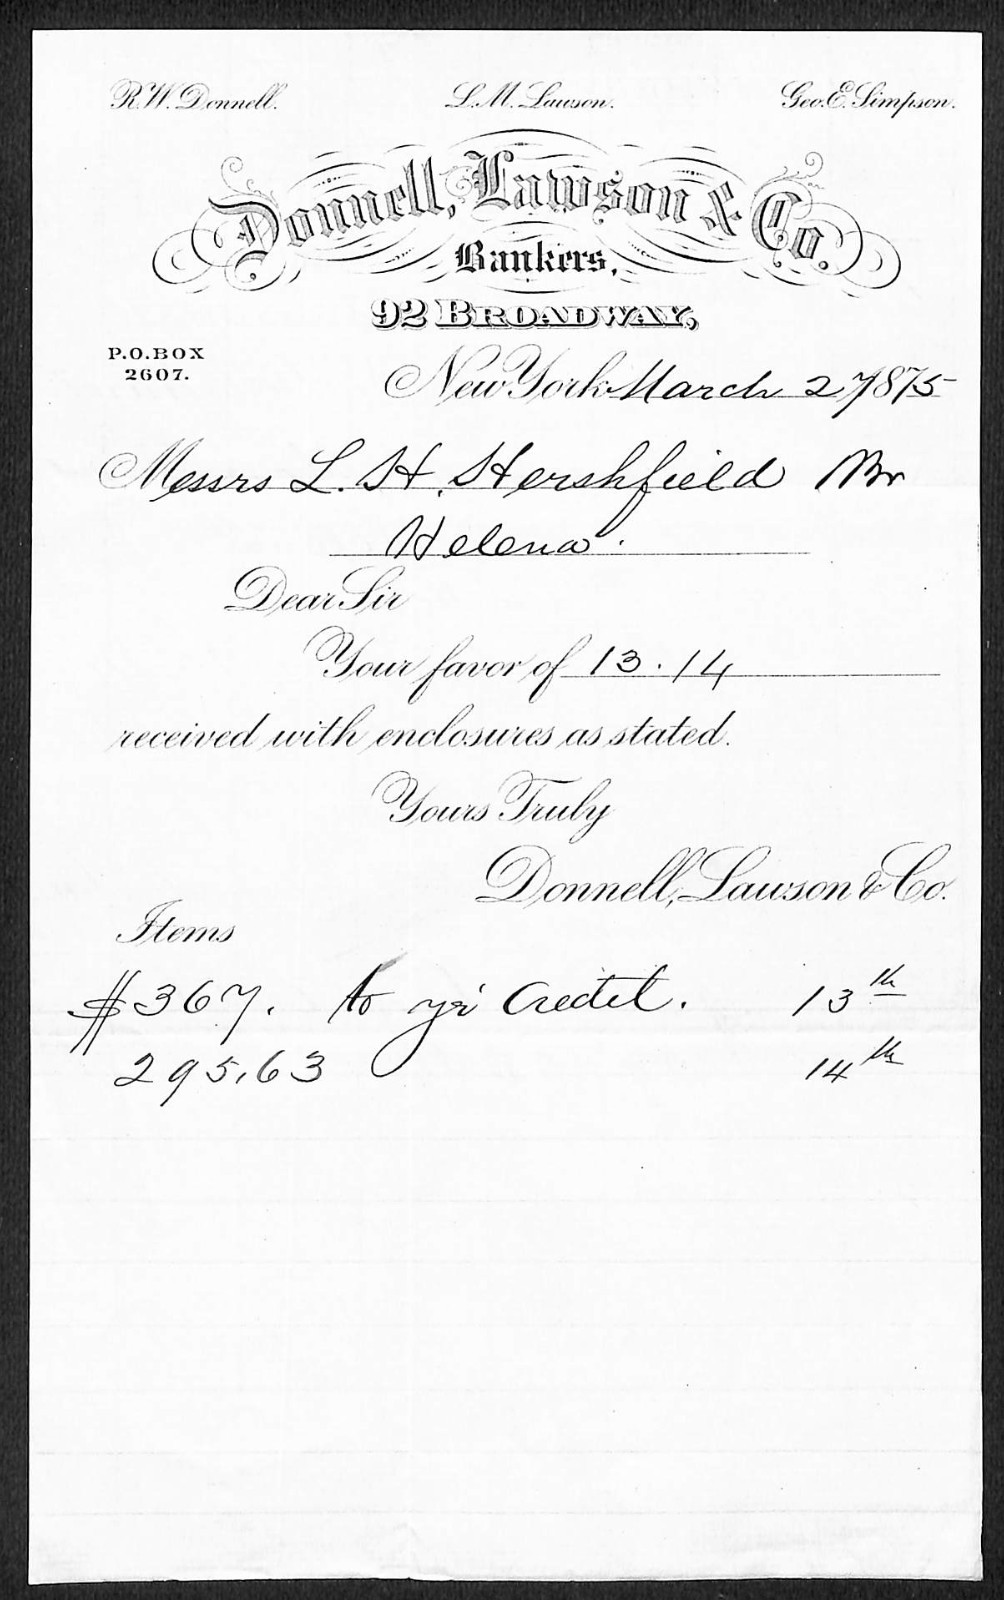 R.W. Donnell. L.M. Lawson. Geo. E. Simpson.
Donnell, Lawson & Co.
Bankers,
92 BROADWAY,
P.O.BOX
2607.
New York March 27 1875
Messrs L. H. Hershfield Br
Helena.
Dear Sir
Your favor of 13.14
received with enclosures as stated.
Yours Truly
Donnell, Lawson & Co.
Items
$367. to yr credit. 13th
295,63 14th